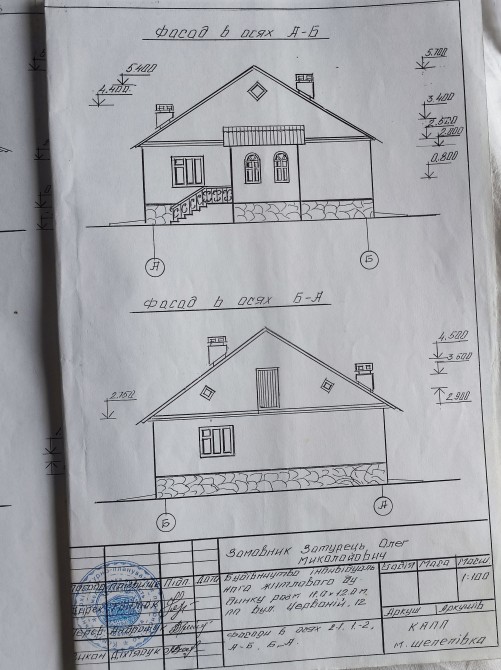 Фасад в осях А-Б
5.400
4.400
5.700
3.400
2.000
0.800
А
Б
Фасад в осях Б-А
4.500
3.600
2.750
2.900
Б
А
Замовник Затурець Олег
Миколайович
Підп.
Дата
Будівництво індивідуаль
ного житлового бу
динку розм 11.0 х 12.0 м.
по вул. Червоній, 12.
Стадія
Маса
Масш
1:100
Аркуш
Аркушів
Фасади в осях 2-1, 1-2,
А-Б, Б-А.
КАПП
м. Шепетівка